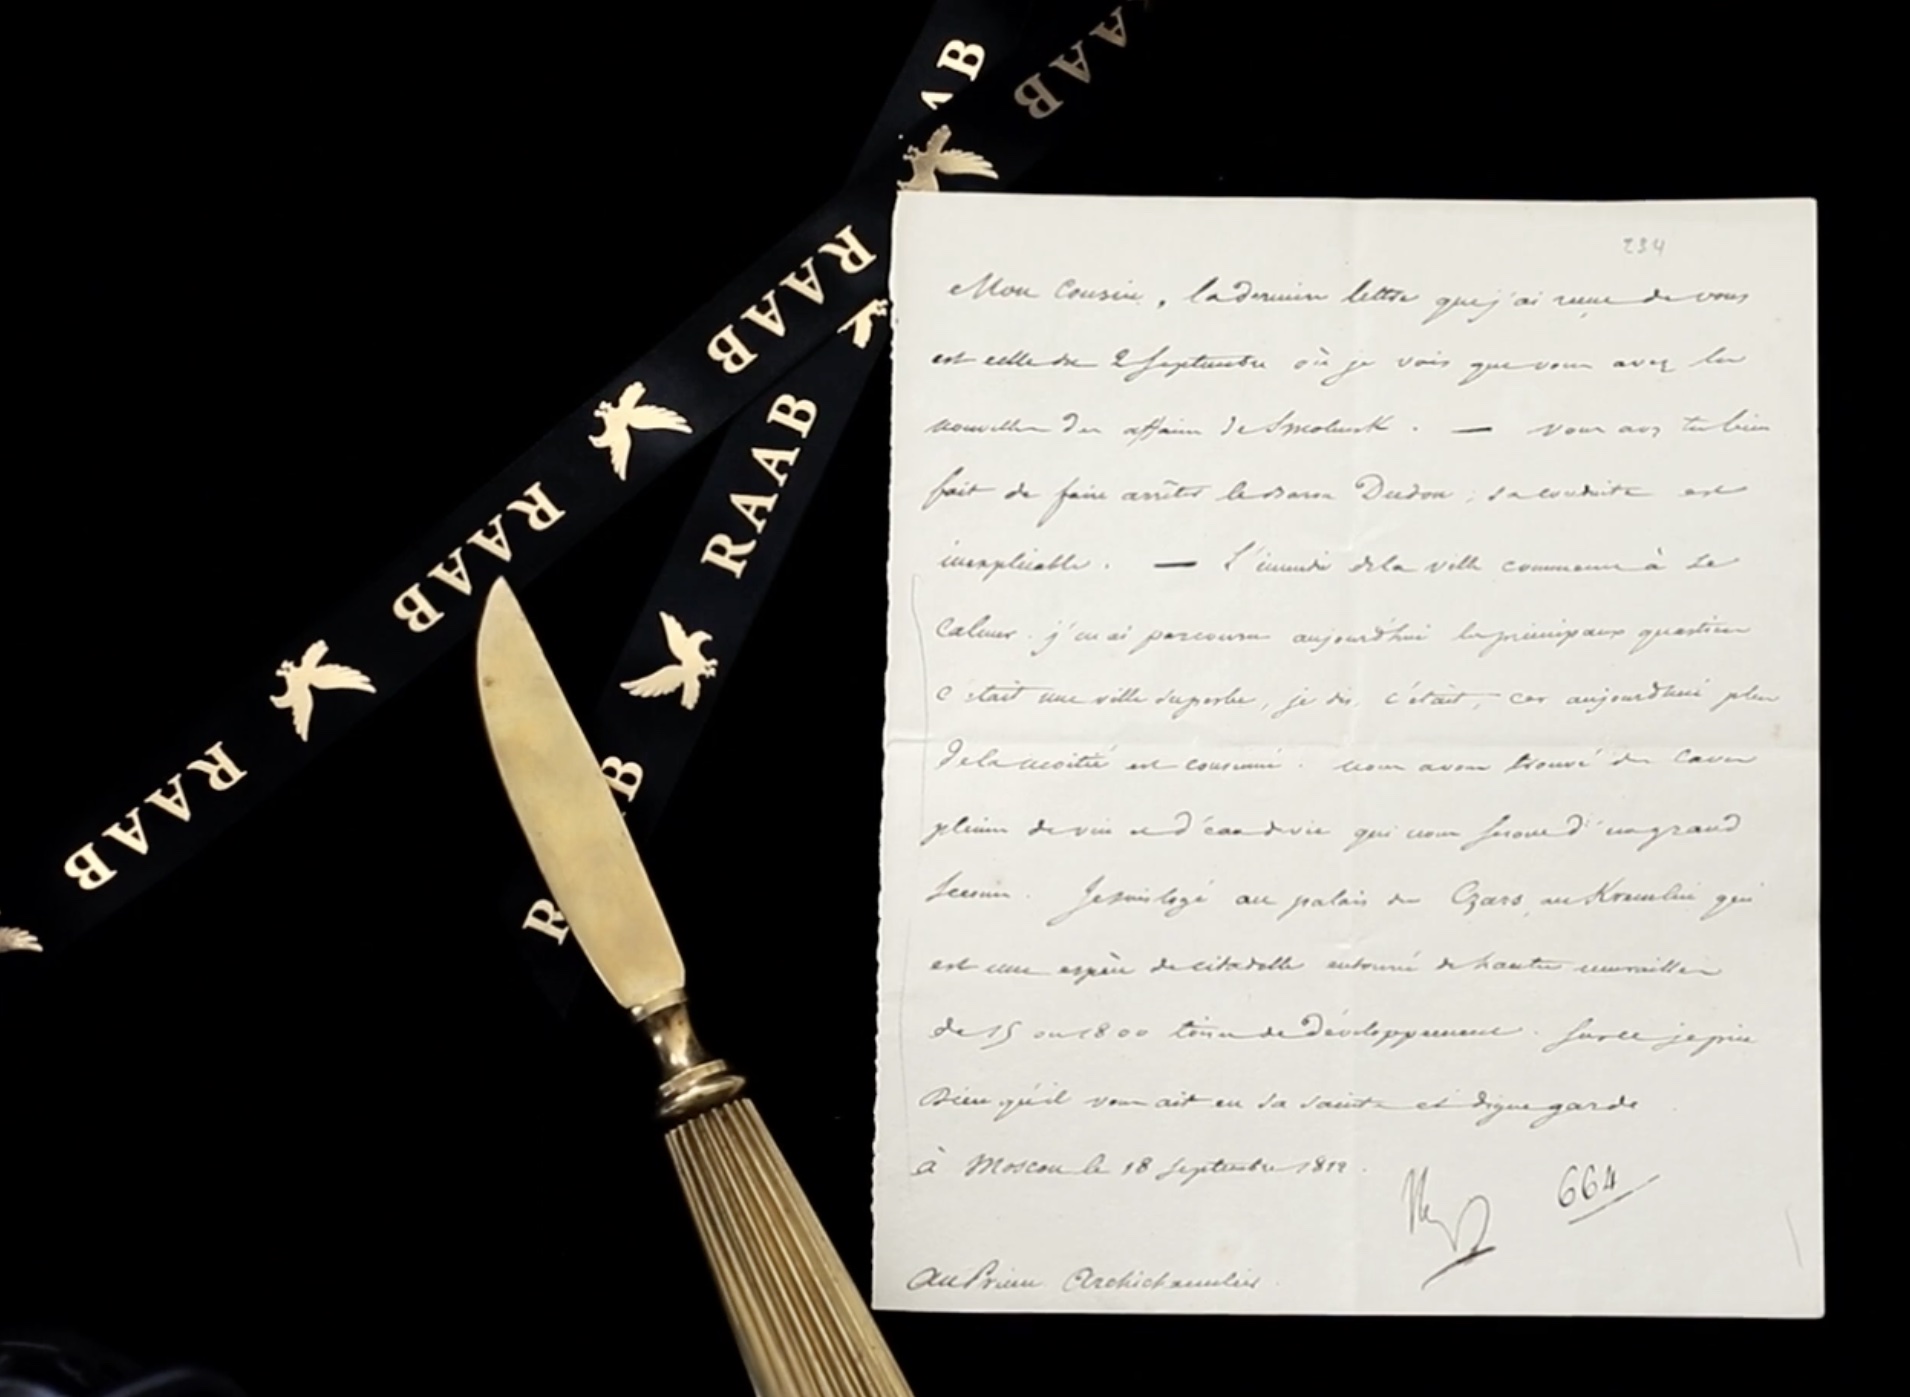 RAAB
RAAB
RAAB
RAAB
RAAB
B
234
Mon Cousin, la dernière lettre que j'ai reçue de vous
est celle du 2 Septembre où je vois que vous avez lu
nouvelles des affaires de Smolensk. — vous avez très bien
fait de faire arrêter le Baron Dudon; sa conduite est
inexplicable. — L'incendie de la ville commence à se
calmer. j'en ai parcouru aujourd'hui les principaux quartiers
c'était une ville superbe, je dis, c'était, car aujourd'hui plus
de la moitié est consumé. nous avons trouvé des caves
pleines de vin et d'eau de vie qui nous seront d'un grand
secours. Je suis logé au palais des Czars, au Kremlin qui
est une espèce de citadelle entourée de hautes murailles
de 15 ou 1800 toises de développement. Sur ce je prie
Dieu qu'il vous ait en sa sainte et digne garde
à Moscou le 18 Septembre 1812.
664
Au Prince Archichancelier